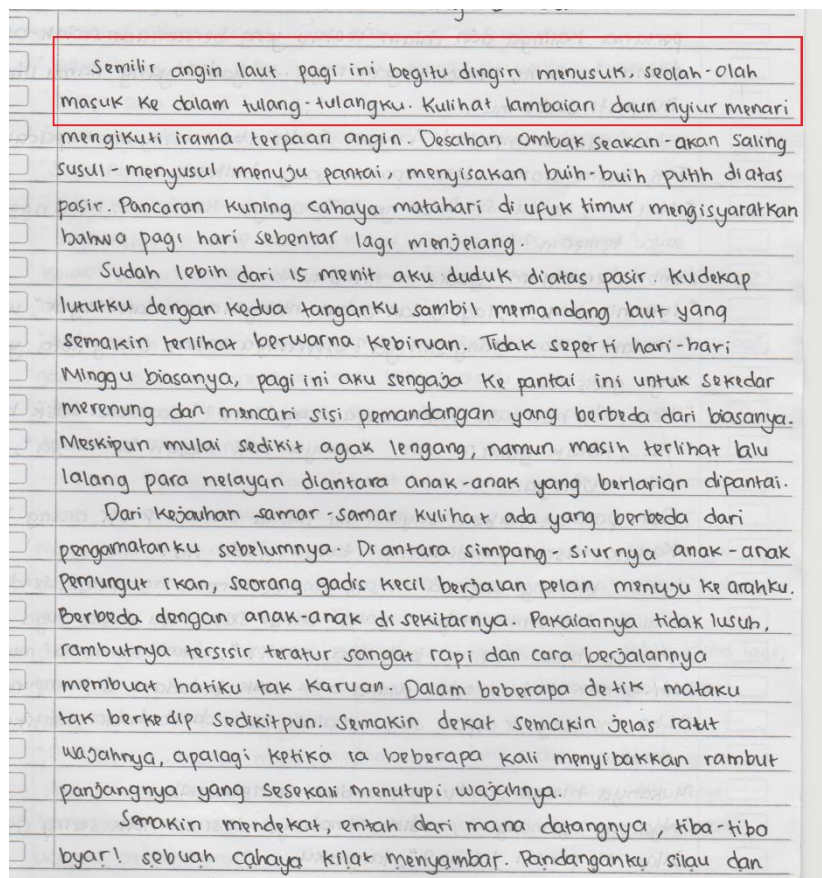 Semilir angin laut pagi ini begitu dingin menusuk, seolah-olah
masuk ke dalam tulang-tulangku. Kulihat lambaian daun nyiur menari
mengikuti irama terpaan angin. Desahan ombak seakan-akan saling
susul-menyusul menuju pantai, menyisakan buih-buih putih diatas
pasir. Pancaran kuning cahaya matahari di ufuk timur mengisyaratkan
bahwa pagi hari sebentar lagi menjelang.
Sudah lebih dari 15 menit aku duduk diatas pasir. Kudekap
lututku dengan kedua tanganku sambil memandang laut yang
semakin terlihat berwarna kebiruan. Tidak seperti hari-hari
Minggu biasanya, pagi ini aku sengaja ke pantai ini untuk sekedar
merenung dan mencari sisi pemandangan yang berbeda dari biasanya.
Meskipun mulai sedikit agak lengang, namun masih terlihat lalu
lalang para nelayan diantara anak-anak yang berlarian dipantai.
Dari kejauhan samar-samar kulihat ada yang berbeda dari
pengamatanku sebelumnya. Diantara simpang-siurnya anak-anak
pemungut ikan, seorang gadis kecil berjalan pelan menuju ke arahku.
Berbeda dengan anak-anak di sekitarnya. Pakaiannya tidak lusuh,
rambutnya tersisir teratur sangat rapi dan cara berjalannya
membuat hatiku tak karuan. Dalam beberapa detik mataku
tak berkedip sedikitpun. Semakin dekat semakin jelas raut
wajahnya, apalagi ketika ia beberapa kali menyibakkan rambut
panjangnya yang sesekali menutupi wajahnya.
Semakin mendekat, entah dari mana datangnya, tiba-tiba
byar! sebuah cahaya kilat menyambar. Pandanganku silau dan